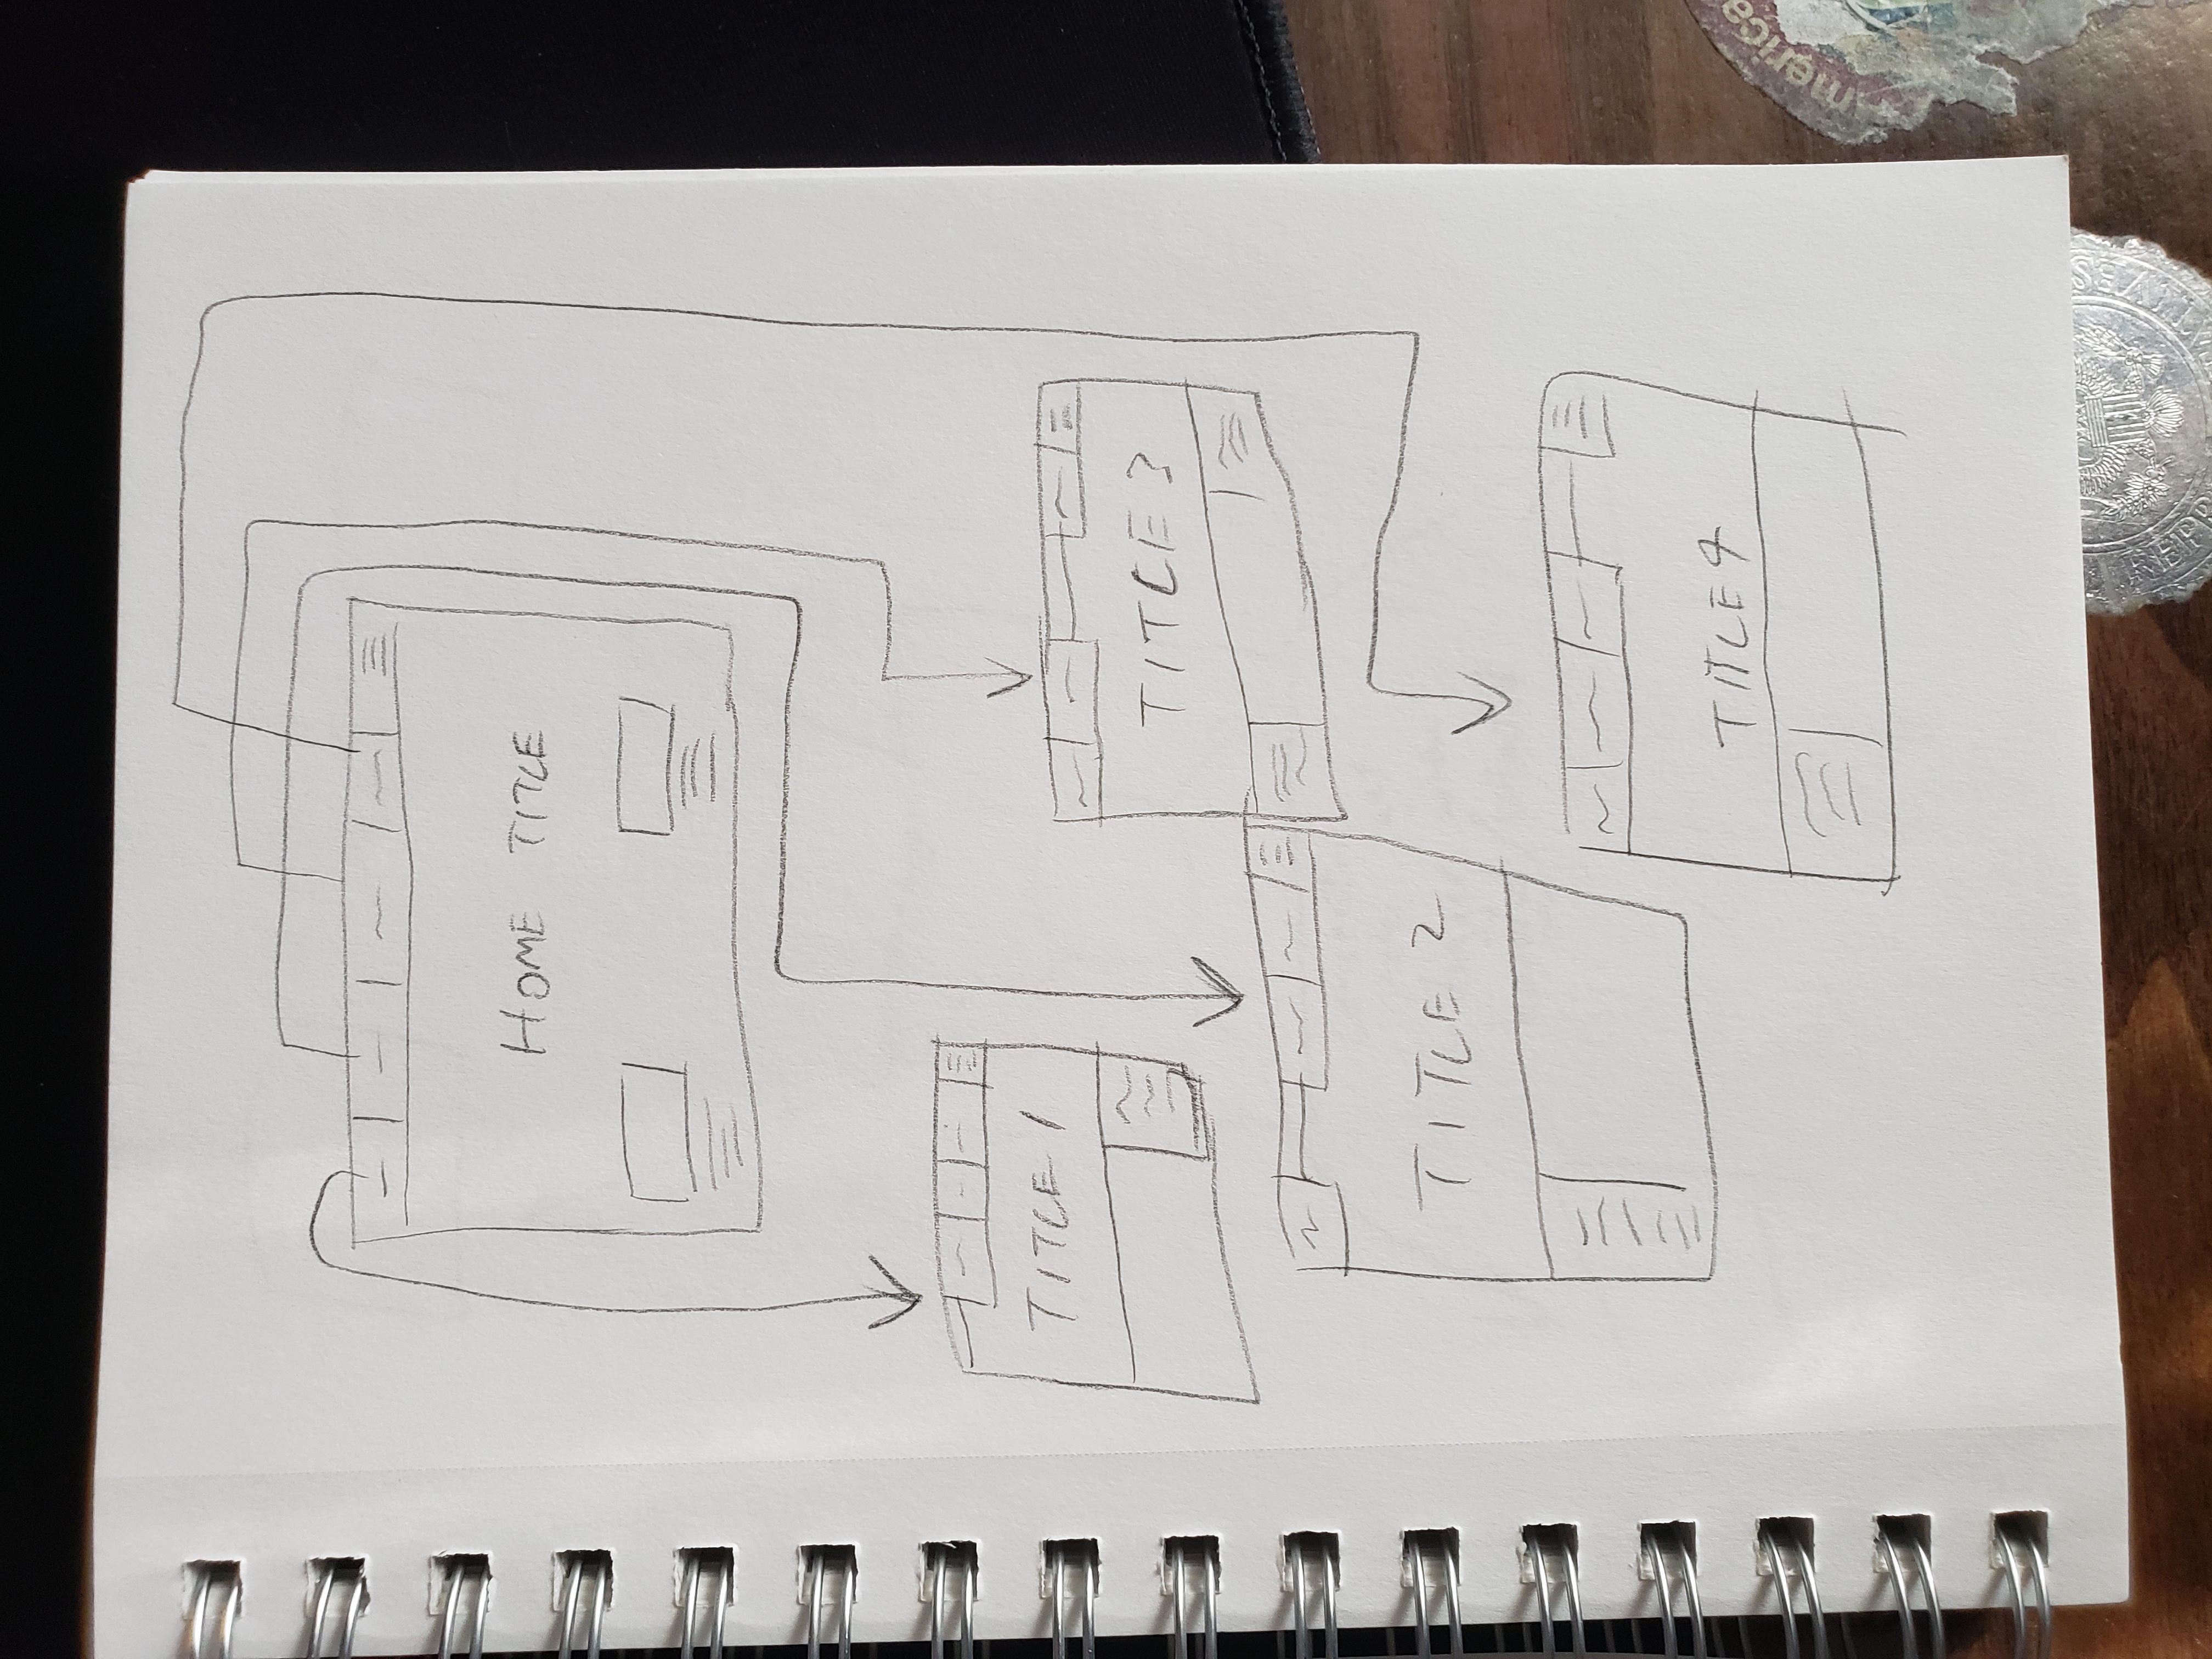 HOME TITLE
TITLE 1
TITLE 3
TITLE 2
TITLE 4
merica